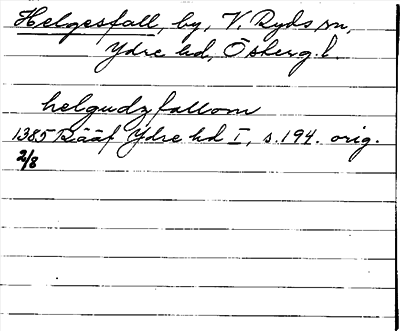 Helgesfall, by, V. Ryds sn,
Ydre hd, Ösberg. l.
helgudzfallom
1385 Rääf Ydre hd I, s. 194. orig.
2/8